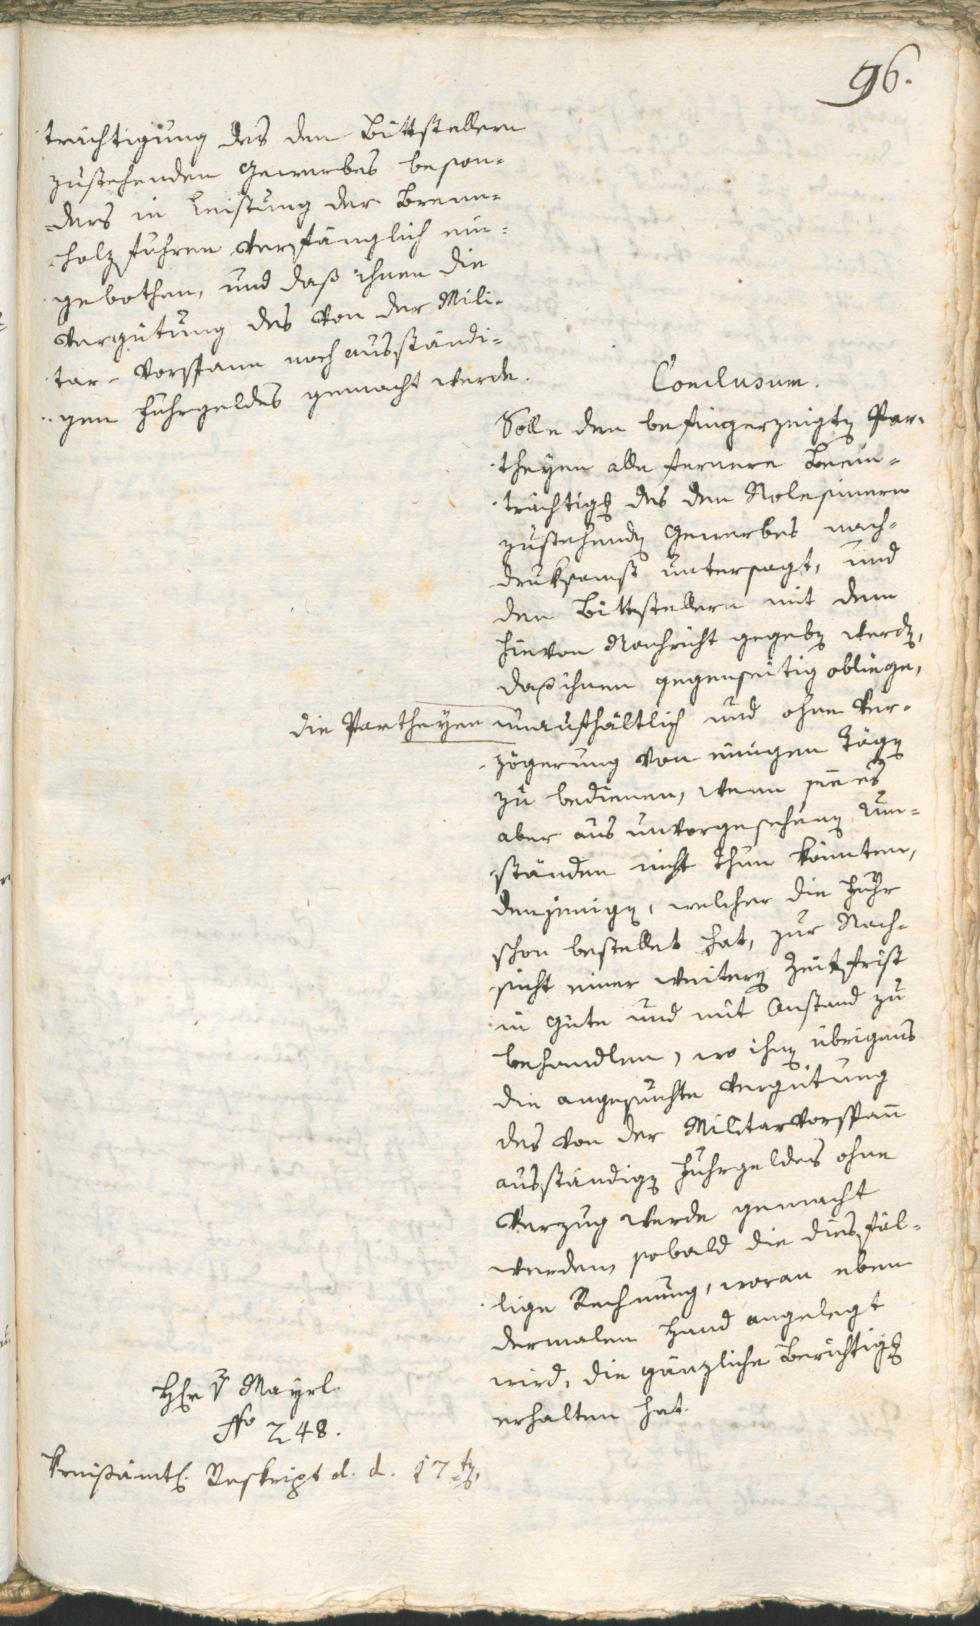 96.
trächtigung des den Bittstellern
zustehenden Gewerbes beson-
ders in Leistung der Brenn-
holz fuhren verfänglich ein-
gebothen, und daß ihnen die
Vergütung des von der Mili-
tar-Vorspann noch ausständi-
gen Fuhrgeldes gemacht werde.
Conclusum.
Solle den befingerzeigten Par-
theyen alle fernere Beein-
trächtigung des den Rolesinern
zustehenden Gewerbes nach-
druksamst untersagt, und
den Bittstellern mit deme
hievon Nachricht gegeben werden,
daß ihnen gegenseitig obliege,
die Partheyen unaufhältlich und ohne Ver-
zögerung von einigen Tägen
zu bedienen, wenn sie es
aber aus unvorgesehenen Um-
ständen nicht thun könnten,
denjenigen, welcher die Fuhr
schon bestellet hat, zur Nach-
sicht einer weitern Zeitfrist
in Güte und mit Anstand zu
behandlen, wo ihnen übrigens
die angesuchte Vergütung
des von der Militarvorspann
ausständigen Fuhrgeldes ohne
Verzug werde gemacht
werden, sobald die diesfäl-
lige Rechnung, woran eben
dermalen Hand angelegt
wird, die gänzliche Berichtigung
erhalten hat.
Mayrl.
248.
Kreißämtl. Reskript d. d. 17ten